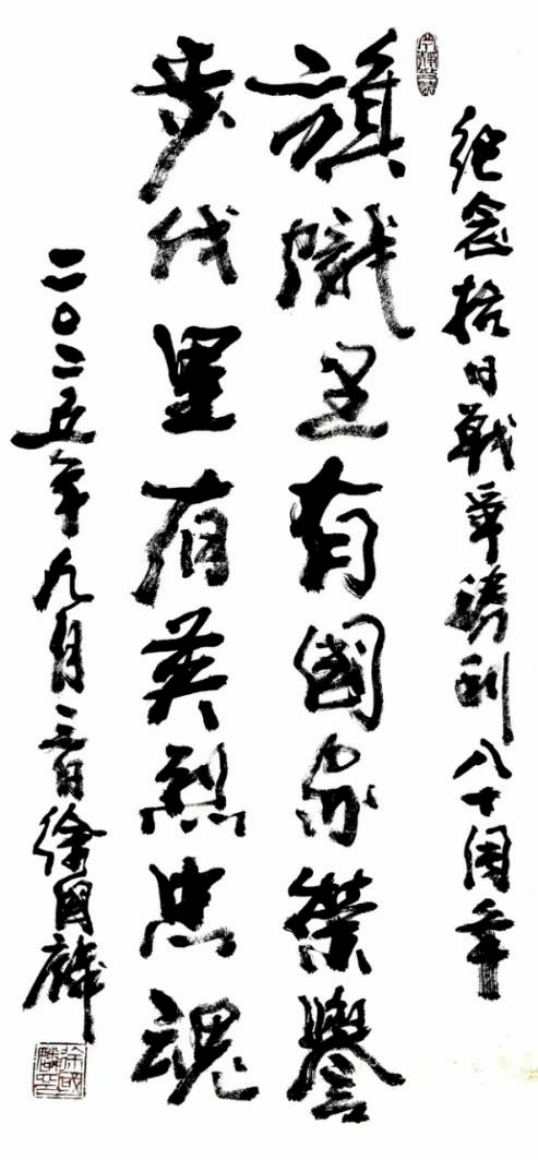 纪念抗日戰争勝利八十周年
旗幟里有國家榮譽
步伐里有英烈忠魂
二〇二五年九月三日徐國麟
徐國麟印